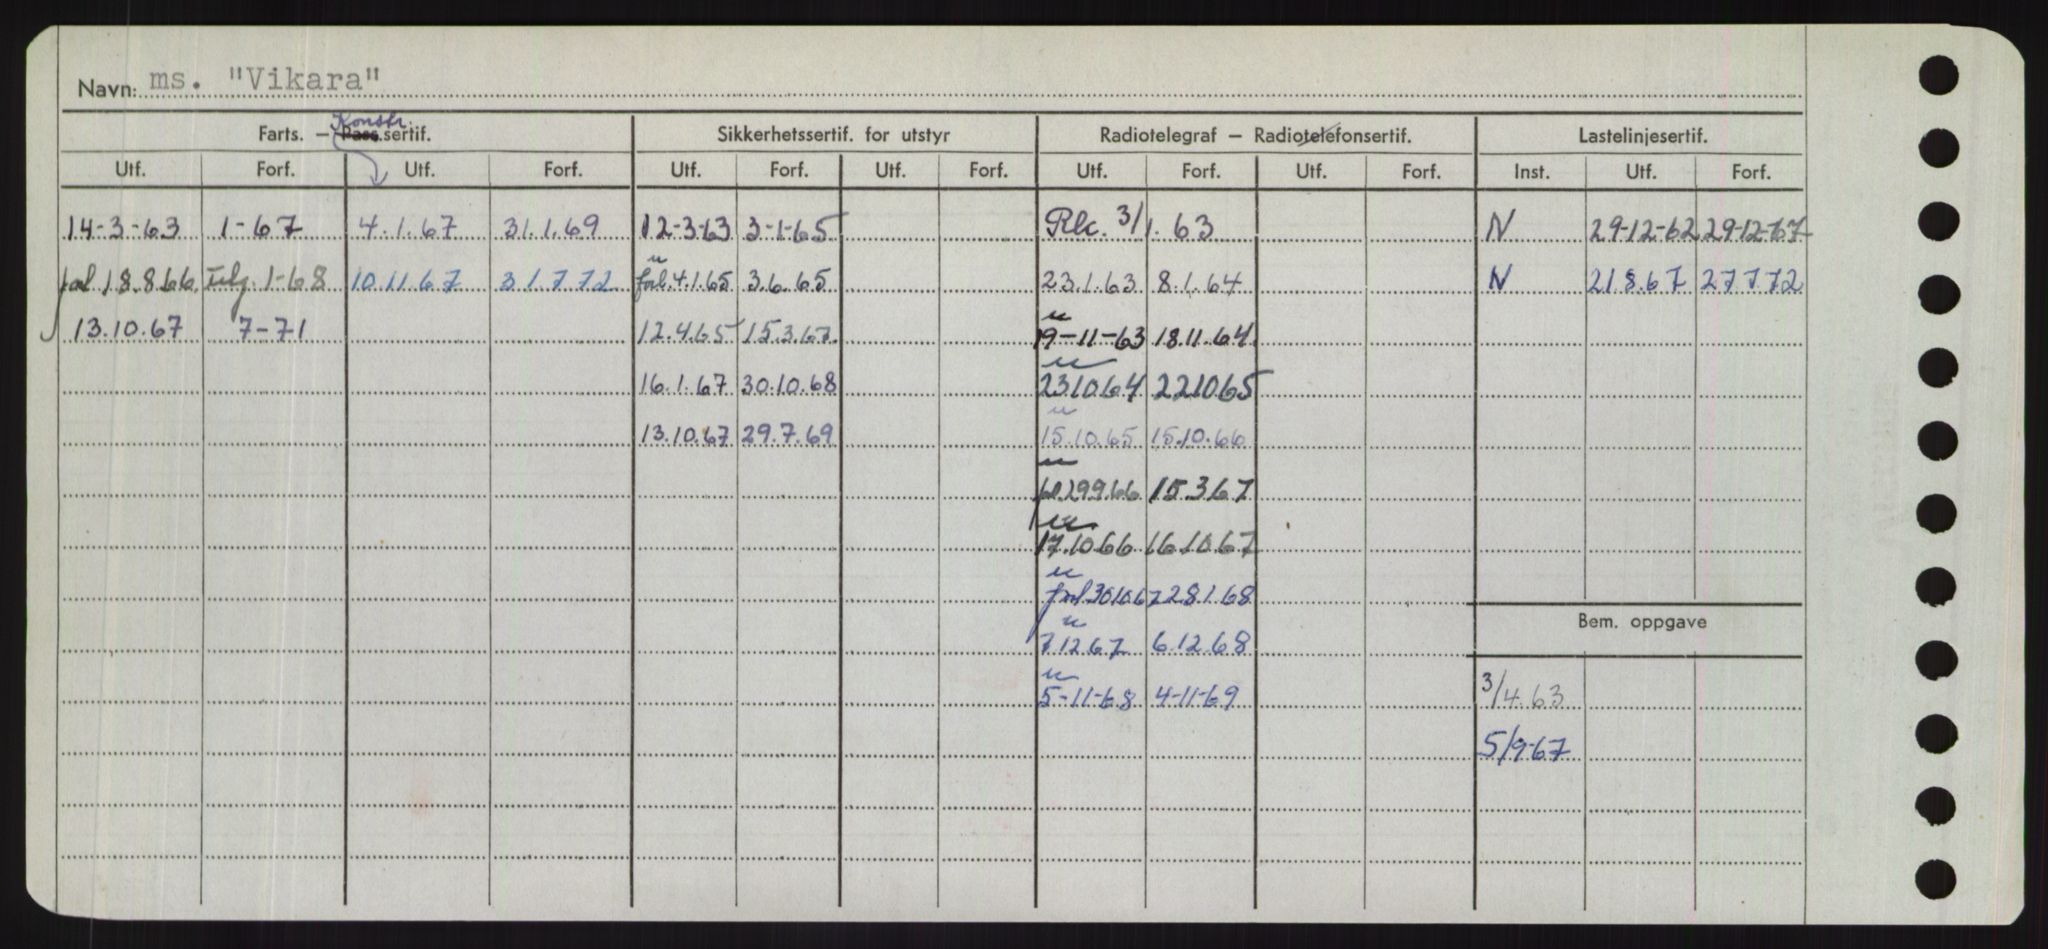 Navn: ms. "Vikara"
Konstr.
Farts. – Pass.sertif. Sikkerhetssertif. for utstyr Radiotelegraf – Radiotelefonsertif. Lastelinjesertif.
Utf. Forf. Utf. Forf. Utf. Forf. Utf. Forf. Utf. Forf. Utf. Forf. Inst. Utf. Forf.
14-3-63 1-67 4.1.67 31.1.69 12-3-63 3-1-65 3/1.63 N 29-12-62 29-12-67
forl. 18.8.66 1-68 10.11.67 31.7.72 forl. 4.1.65 3.6.65 23.1.63 8.1.64 N 21.8.67 27.7.72
13.10.67 7-71 12.4.65 15.3.67 19-11-63 18.11.64
16.1.67 30.10.68 23.10.64 22.10.65
13.10.67 29.7.69 15.10.65 15.10.66
forl. 29.9.66 15.3.67
17.10.66 16.10.67
forl. 30.10.67 28.1.68
Bem. oppgave
7.12.67 6.12.68
5-11-68 4-11-69 3/4.63
5/9-67